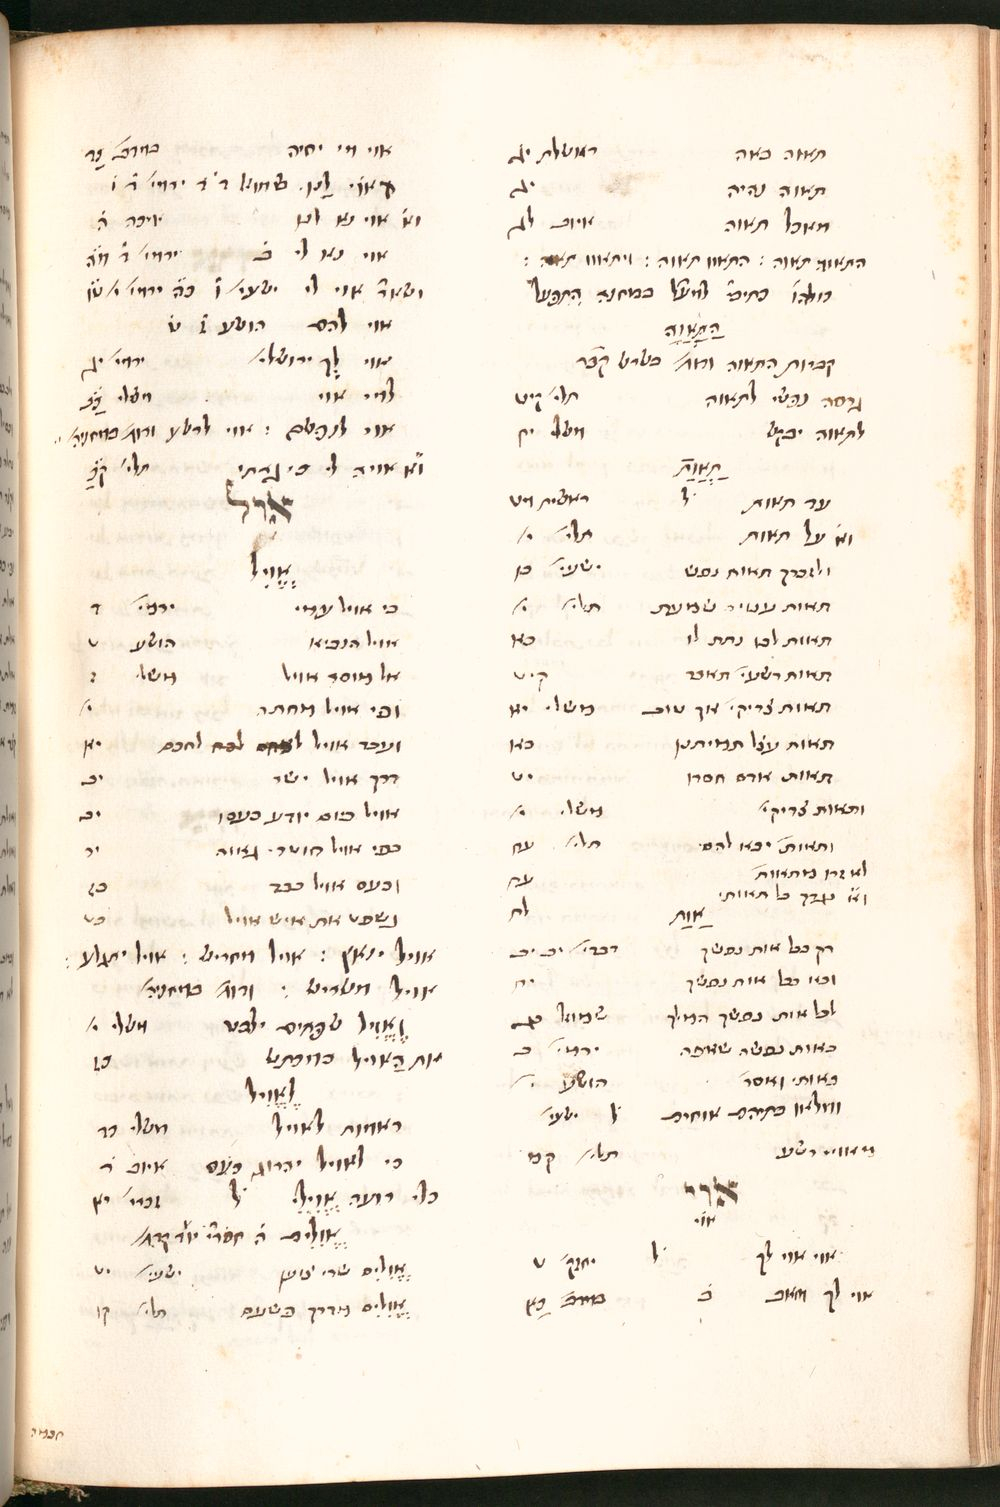 תאוה באה ראשלת יג
תאוה נהיה יג
מאכל תאוה איוב לג
התאוו תאוה : התאוו תאוה : ויתאוו תאוה :
כולהו כתיב למעל במחנה התפעל
הַתַּאֲוָה
קברות התאוה ורוא בשרש קבר
גרסה נפשי לתאוה תלי קיט
לתאוה יבקש משל יח
תַּאֲוַת
עד תאות ל ראשית מט
וא על תאות תלי י
ולזכרך תאות נפש ישעי כו
תאות ענוים שמעת תלי י
תאות לבו נתת לו כא
תאות רשעי תאבד קיב
תאות צדיקי אך טוב משלי יא
תאות עצל תמיתנו כא
תאות אדם חסדו יט
ותאות צדיקי משלי י
ותאות יבא להם תלי עח
לא זרו מתאותם עח
וא נגדך כל תאותי לח
אַוַּת
רק בכל אות נפשך דברי יב יב
ובא בכל אות נפשך יח
לכל אות נפשך המלך שמואל
באות נפשה שאפה ירמי ב
באותי ואסר הושע י
ומלאו בתיהם אוחים ל ישעי
מאויי רשע תלי קמ
אוי
אוי
אוי אוי לך ל יחזק
אוי לך מואב ב במדב כא
אוי מי יחיה במדב כד
אוי לנו שמוא ד ד ירמי ד ו
וא אוי נא לנו איכה ה
אוי נא לי ב ירמי ד מה
ושאר אוי לי ישעי ו כד ירמי י טו
אוי להם הושע ז ט
אוי לך ירושלי ירמי יג
למי אוי משלי כג
אוי לנפשם : אוי לרשע ורוא במחניה
וא אויה לי כי גרתי תלי קכ
אול
אֱוִיל
כי אויל עמי ירמי ד
אויל הנביא הושע ט
אל מוסר אויל משלי ז
ופי אויל מחתה י
ועבד אויל לחכם לב יא
דרך אויל ישר יב
אויל ביום יודע כעסו יב
בפי אויל חוטר גאוה יד
וכעס אויל כבד כז
נשפט את איש אויל כט
אויל ינאץ : אויל מחריש : אויל יתגלע :
אויל משריש : ורוא במחניה
וֶאֱוִיל שפתים ילבט משלי י
את הָאויל במכתש כז
לֶאֱוִיל
ראמות לאויל משלי כד
כי לאויל יהרוג כעס איוב ה
כלי רועה אֱוִילִי ל זכרי יא
אֱוִלִים ה חסרי יוד
אֱוִלִים שרי צוען ישעי יט
אֱוִלִים מדרך פשעם תלי קז
חכמיה